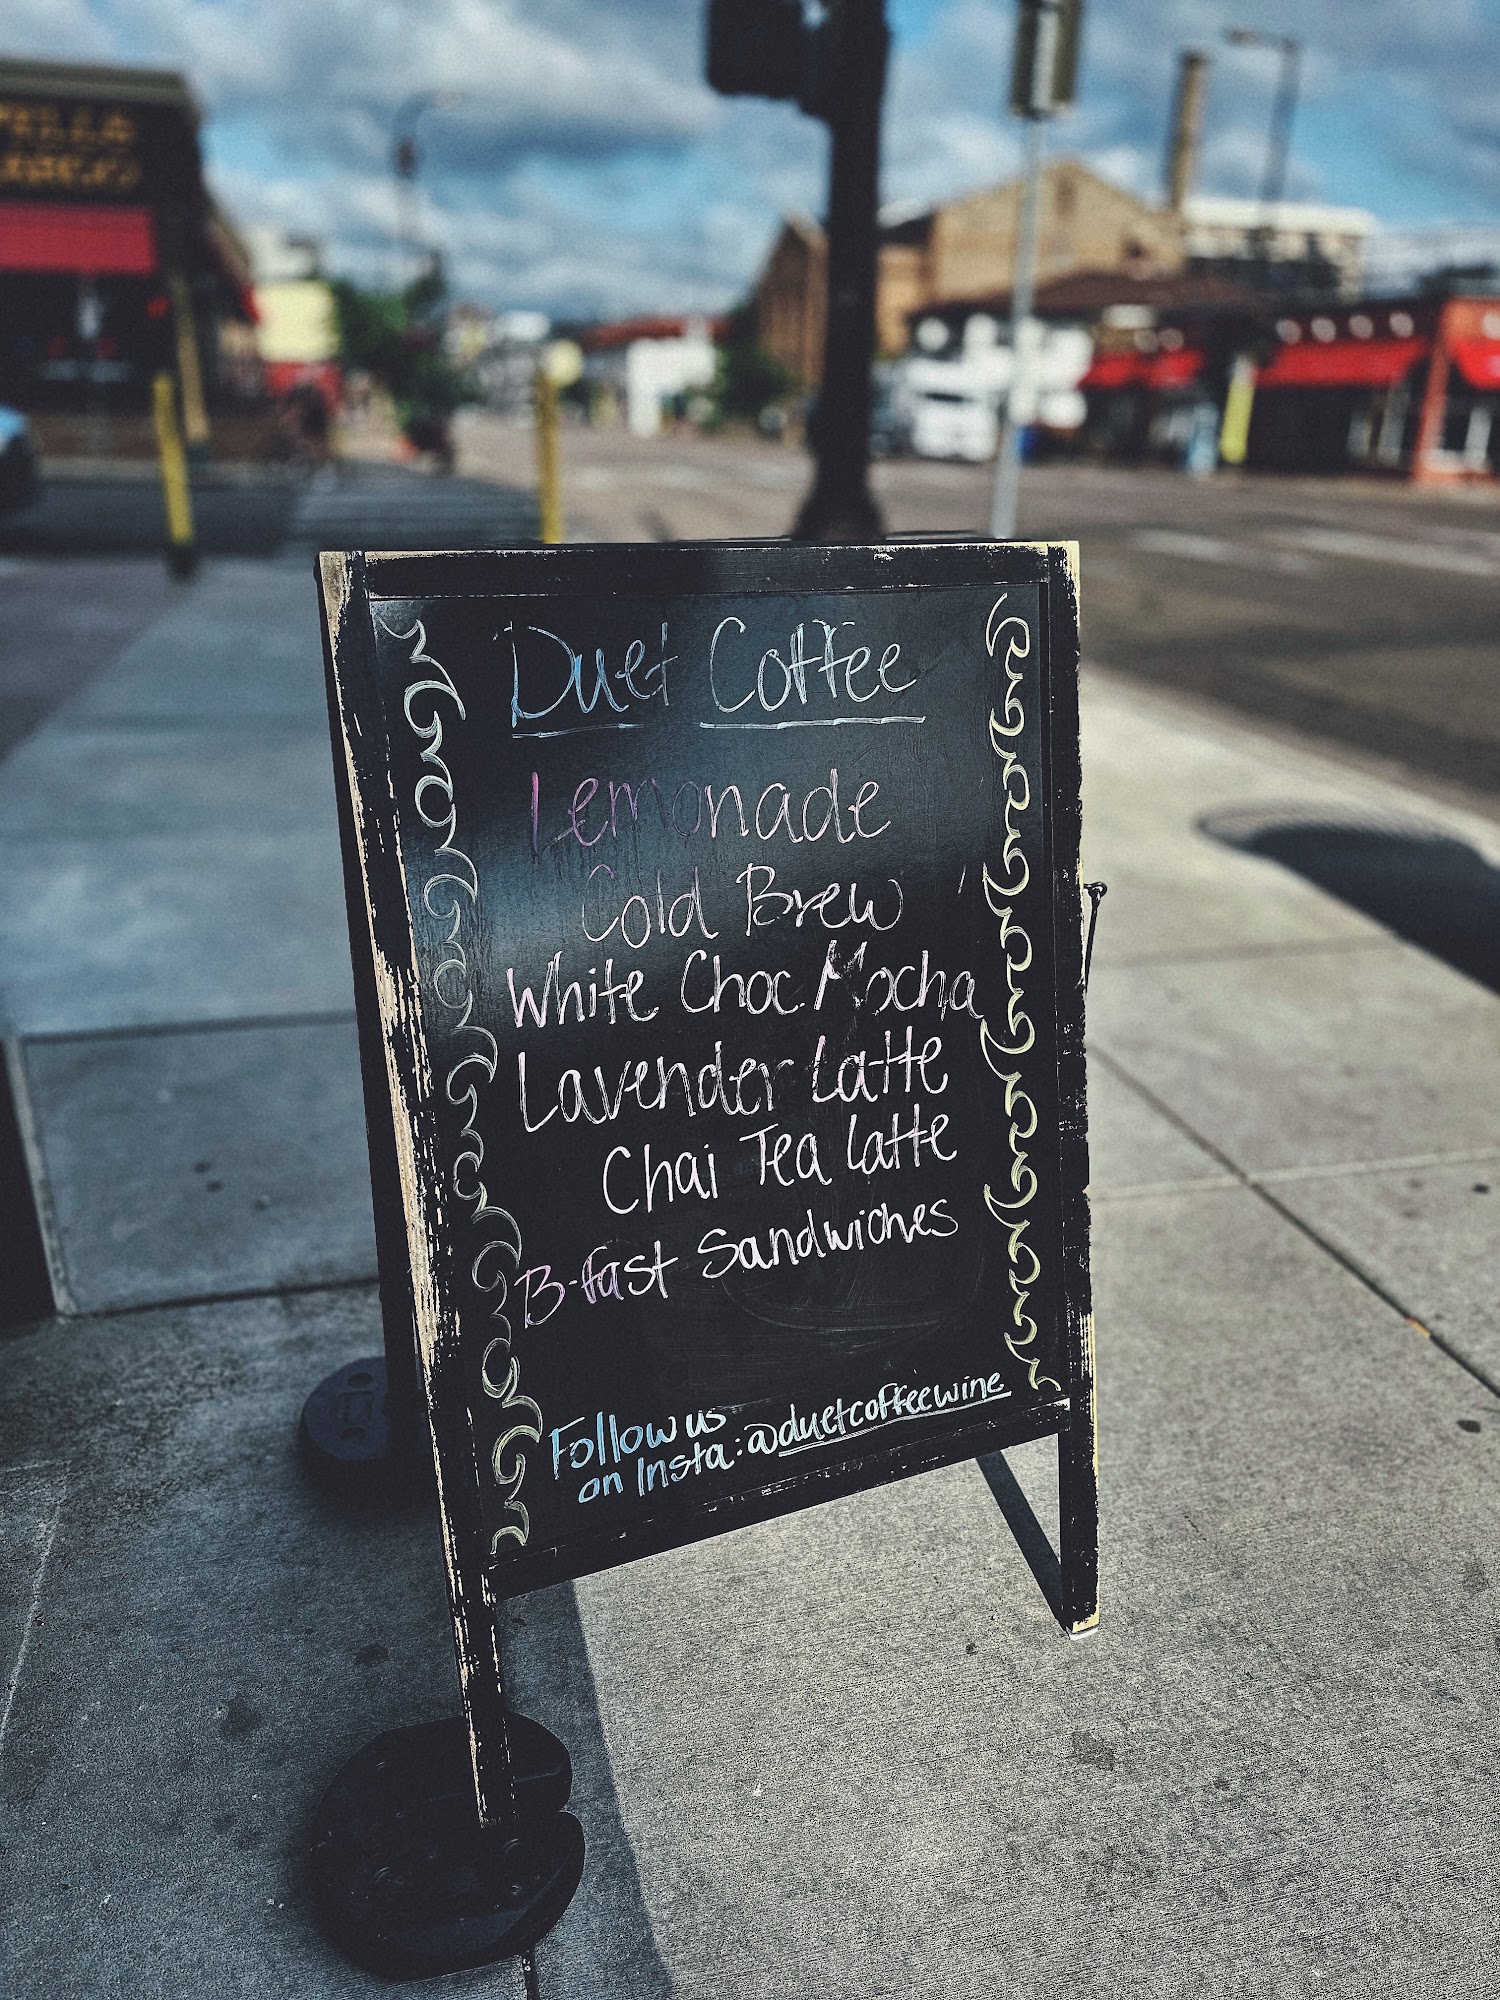 Duet Coffee
Lemonade
Cold Brew
White Choc. Mocha
Lavender Latte
Chai Tea Latte
B-fast Sandwiches
Follow us
on Insta: @duetcoffeewine